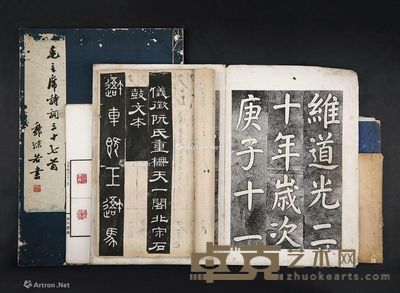 毛主席詩詞三十七首
郭沫若書
儀徵阮氏重橅天一閣北宋石
鼓文本
車既工
馬
維道光二
十年歲次
庚子十一
Artron.Net
卓克艺术网
zhuokearts.com
Artron.Net